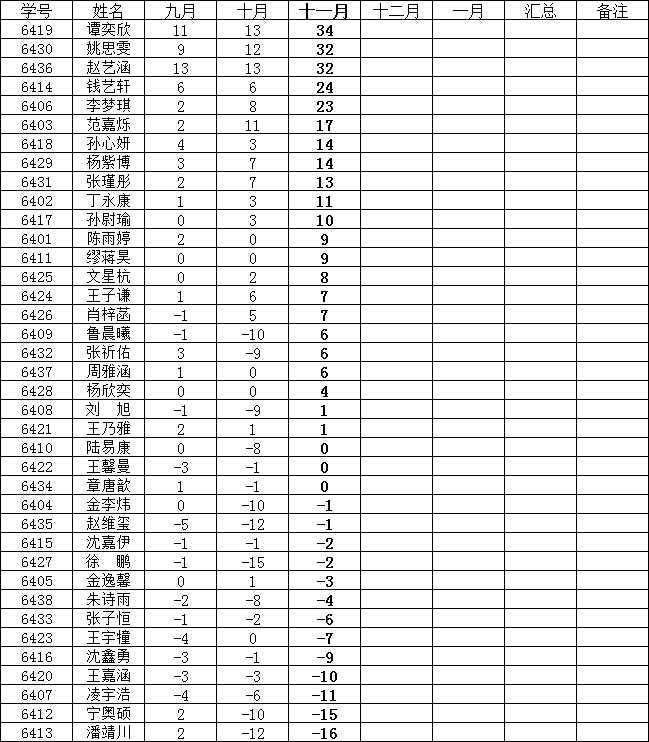 学号 姓名 九月 十月 十一月 十二月 一月 汇总 备注
6419 谭奕欣 11 13 34
6430 姚思雯 9 12 32
6436 赵艺涵 13 13 32
6414 钱艺轩 6 6 24
6406 李梦琪 2 8 23
6403 范嘉烁 2 11 17
6418 孙心妍 4 3 14
6429 杨紫博 3 7 14
6431 张瑾彤 2 7 13
6402 丁永康 1 3 11
6417 孙尉瑜 0 3 10
6401 陈雨婷 2 0 9
6411 缪蒋昊 0 0 9
6425 文星杭 0 2 8
6424 王子谦 1 6 7
6426 肖梓菡 -1 5 7
6409 鲁晨曦 -1 -10 6
6432 张祈佑 3 -9 6
6437 周雅涵 1 0 6
6428 杨欣奕 0 0 4
6408 刘 旭 -1 -9 1
6421 王乃雅 2 1 1
6410 陆易康 0 -8 0
6422 王馨曼 -3 -1 0
6434 章唐歆 1 -1 0
6404 金李炜 0 -10 -1
6435 赵维玺 -5 -12 -1
6415 沈嘉伊 -1 -1 -2
6427 徐 鹏 -1 -15 -2
6405 金逸馨 0 1 -3
6438 朱诗雨 -2 -8 -4
6433 张子恒 -1 -2 -6
6423 王宇橦 -4 0 -7
6416 沈鑫勇 -3 -1 -9
6420 王嘉涵 -3 -3 -10
6407 凌宇浩 -4 -6 -11
6412 宁奥硕 2 -10 -15
6413 潘靖川 2 -12 -16